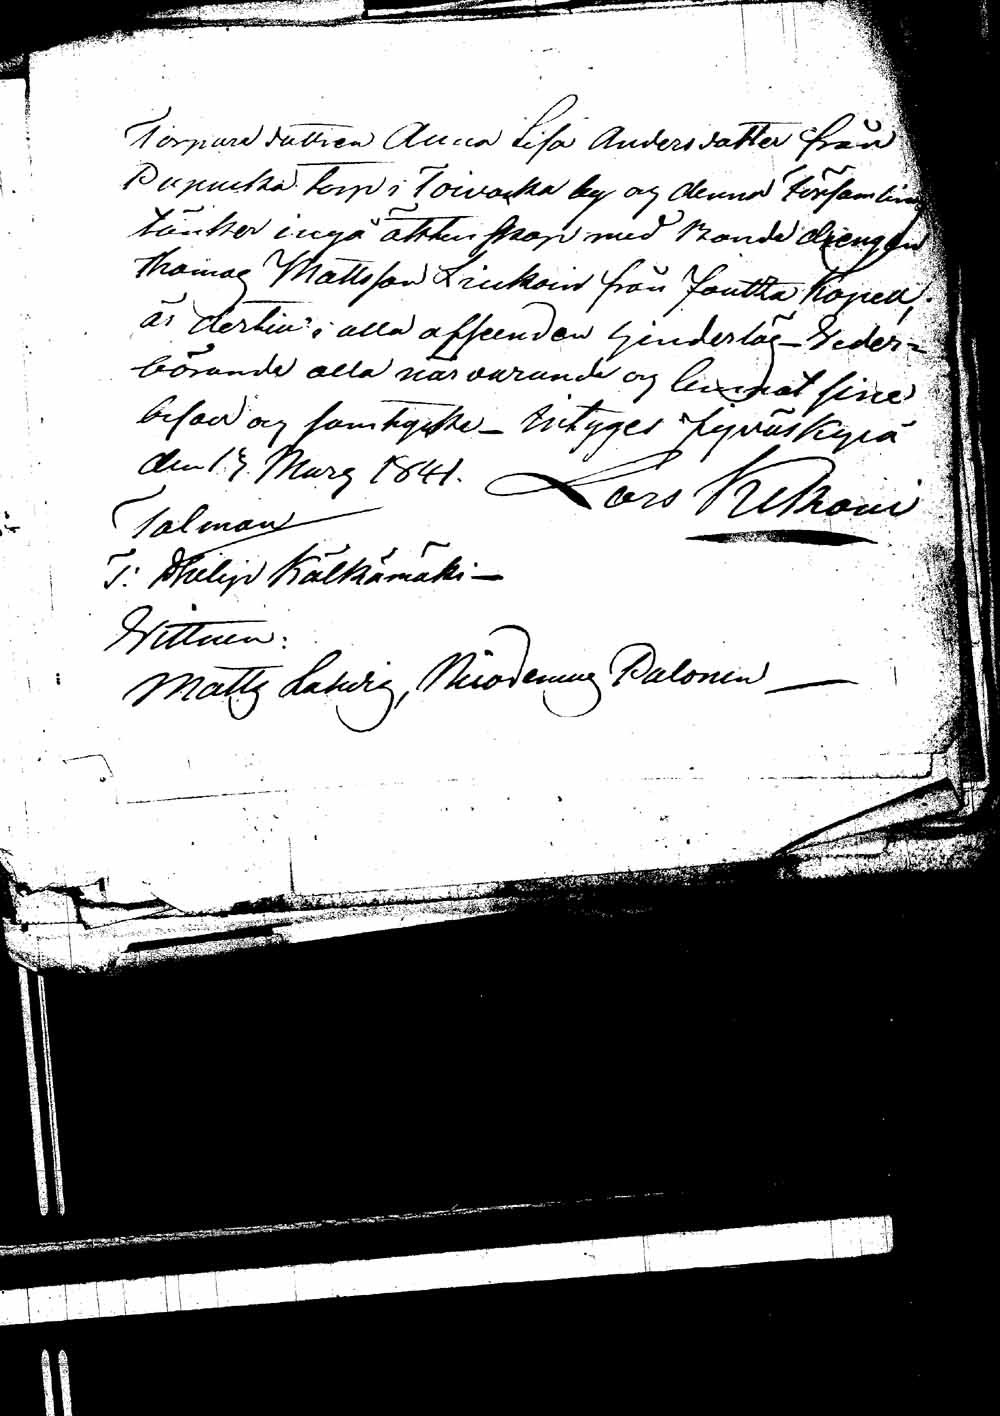 Torpare dattren Anna Lisa Andersdatter från
Pupucka torp i Toivacka by og denna församling
tänker ingå äktenskap med Bonde drengen
Thomas Mattsson Linkoin från Joutsa Kapell,
är dertill i alla afseenden hinderlös – Veder=
börande alla närvarande og lemnat sine
bifall og samtycke – Intyges Jyväskylä
den 17 Mars 1841. Lars Kekoni
Talman
J: Philip Kälkämäki –
Vittnen:
Matts Ludvig, Nicodemus Palonen —